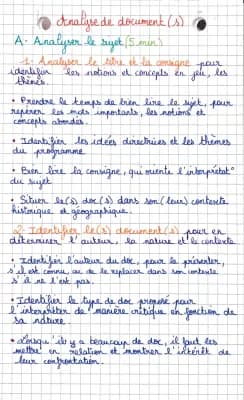 Analyse de document(s)
A- Analyser le sujet (5 min)
1- Analyser le titre et la consigne pour
identifier les notions et concepts en jeu, les
thèmes.
• Prendre le temps de bien lire le sujet, pour
repérer les mots importants, les notions et
concepts abordés.
• Identifier les idées directrices et les thèmes
du programme
• Bien lire la consigne, qui oriente l'interprétat°
du sujet
• Situer le(s) doc(s) dans son (leur) contexte
historique et géographique.
2- Identifier le(s) document(s) pour en
déterminer l'auteur, la nature et le contexte
• Identifier l'auteur du doc, pour le présenter,
s'il est connu, ou de le replacer dans son contexte
s'il ne l'est pas.
• Identifier le type de doc proposé pour
l'interpréter de manière critique en fonction de
sa nature.
• Lorsqu'il y a beaucoup de doc, il faut les
mettre en relation et montrer l'intérêt de
leur confrontation.